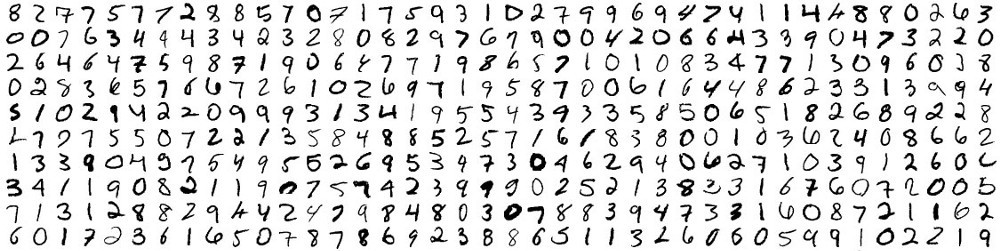 8 2 7 7 5 7 7 2 8 8 5 7 0 7 1 7 5 9 3 1 0 2 7 9 9 6 9 4 7 4 1 1 4 8 8 0 2 6 3
0 0 7 6 3 4 4 4 3 4 2 3 2 8 0 8 2 9 7 6 7 9 0 0 4 2 0 6 6 4 3 3 9 0 4 7 3 2 2 0
2 6 4 6 4 7 5 9 8 7 1 9 0 6 4 7 7 1 9 8 6 5 7 1 0 1 0 8 3 4 7 7 1 3 0 9 6 0 3 8
0 2 8 3 6 5 7 6 6 7 2 6 1 0 2 6 9 7 1 9 5 8 7 0 0 6 1 6 4 4 8 6 2 3 3 1 3 9 9 4
5 1 0 2 9 4 2 2 0 9 9 9 3 1 3 4 1 9 5 5 4 3 9 3 3 5 8 5 0 6 5 1 8 2 6 8 9 2 2 8
2 7 9 7 5 5 0 7 2 2 1 3 5 8 4 8 8 5 2 5 7 1 6 1 8 3 8 0 0 1 0 3 6 2 4 0 8 6 6 2
1 3 3 9 0 4 9 7 5 4 9 5 5 2 6 9 5 3 4 7 3 0 4 6 2 9 4 0 6 2 7 1 0 3 9 1 2 6 0 6
3 4 1 1 9 0 8 2 1 1 9 0 7 5 7 4 2 3 9 9 9 0 2 5 2 1 3 8 3 3 1 6 7 6 0 7 2 0 0 5
7 1 3 1 2 8 8 2 9 4 4 2 4 7 9 8 4 8 0 3 0 7 8 8 3 9 4 7 3 3 1 6 0 8 7 2 1 1 6 2
6 0 1 7 2 3 6 1 6 5 0 7 8 7 8 6 9 2 3 8 8 6 5 1 1 3 2 6 0 6 0 5 9 9 1 0 2 2 1 9